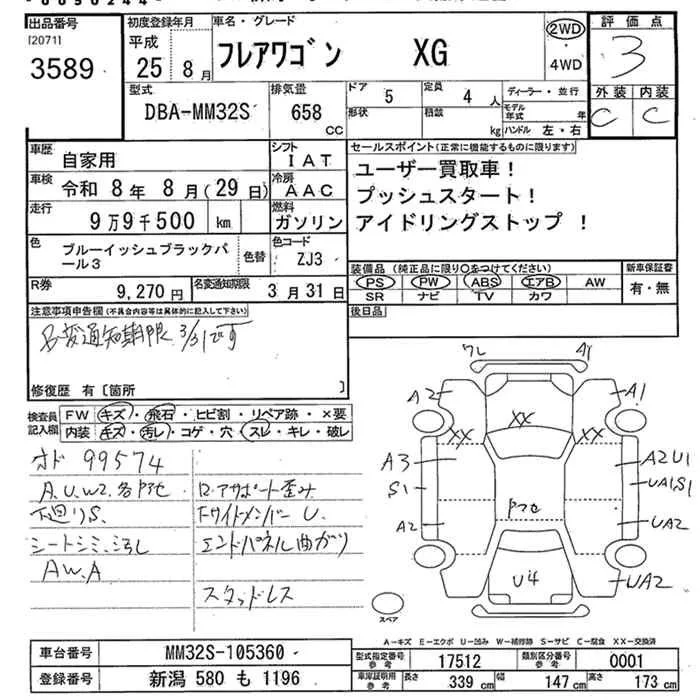 出品番号
[2071]
3589
初度登録年月
平成
25年 8月
車名・グレード
フレアワゴン XG
2WD
・
4WD
評価点
3
外装 内装
C C
型式
DBA-MM32S
排気量
658
CC
ドア
5
形状
定員
4 人
積載
kg
ディーラー・並行
モデル年式 年
ハンドル 左・右
車歴
自家用
シフト
IAT
車検
令和 8年 8月(29日)
冷房
AAC
走行
9万9千500 km
燃料
ガソリン
色
ブルーイッシュブラックパール3
色替
色コード
ZJ3
R券
9,270円
名変通知期限
3月31日
セールスポイント(正常に機能するものに限ります)
ユーザー買取車!
プッシュスタート!
アイドリングストップ !
装備品 (純正品に限り○をつけてください)
PS PW ABS エアB AW
SR ナビ TV カワ
新車保証書
有・無
後日品
注意事項申告欄 (不具合内容等は具体的に記入して下さい)
名変通知期限 3/31です
修復歴 有 〔箇所 〕
検査員記入欄
FW キズ・飛石・ヒビ割・リペア跡・×要
内装 キズ・汚レ・コゲ・穴・スレ・キレ・破レ
オド 99574
A.U.W2.各所他
下廻りS.
シートシミ.
AW.A
ロアサポート歪み
サイドメンバー U.
エンドパネル曲がり
スタッドレス
ワレ
A1
A2
A1
XX
XX
XX
A3
S1
A2
A2U1
UA1S1
UA2
UA2
U4
スペア
A-キズ E-エクボ U-凹み W-補修跡 S-サビ C-腐食 XX-交換済
車台番号
MM32S-105360
登録番号
新潟 580 も 1196
型式指定番号
参考
17512
類別区分番号
参考
0001
車庫証明用
参考
長さ 339 cm 幅 147 cm 高さ 173 cm